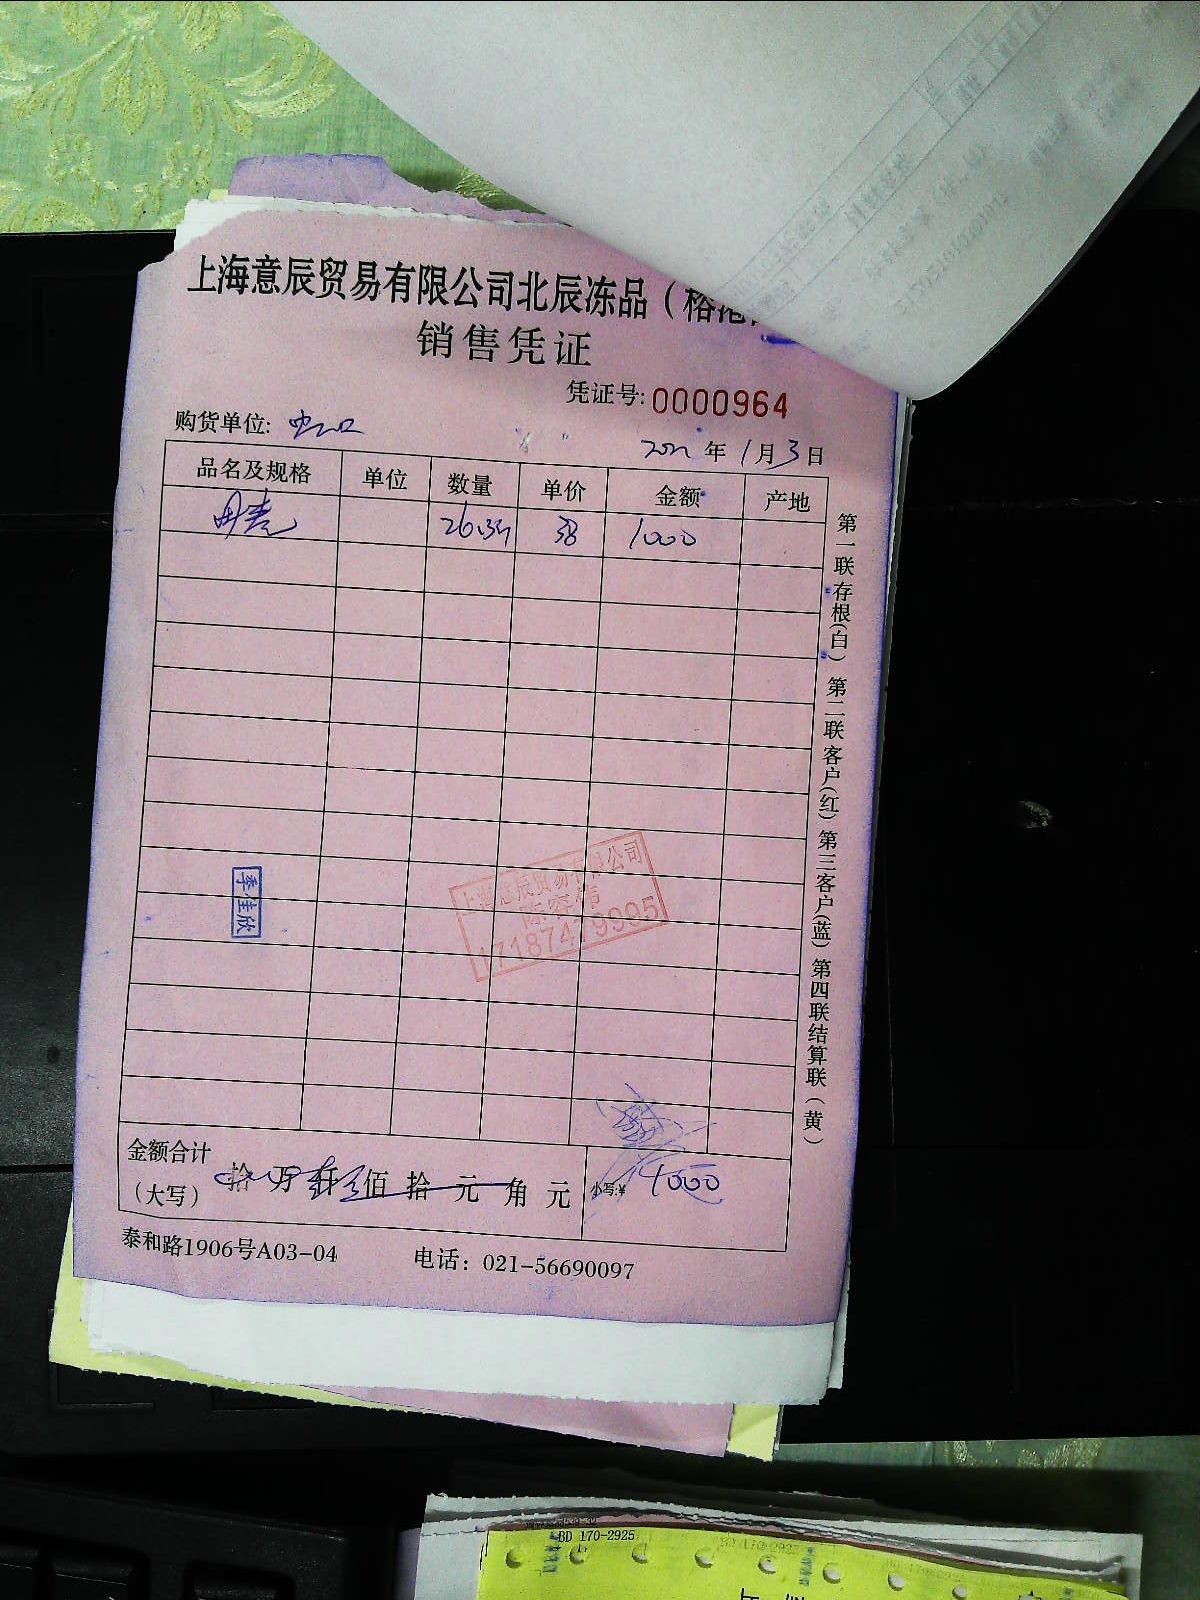 上海意辰贸易有限公司北辰冻品（榕港
销售凭证
凭证号: 0000964
购货单位:
年 1月3日
品名及规格 单位 数量 单价 金额 产地
38 1000
第一联存根(白) 第二联客户(红) 第三客户(蓝) 第四联结算联（黄）
季佳欣
上海意辰贸易有限公司
17187479905
金额合计
（大写） 拾 万 仟 佰 拾 元 角 元 小写:¥ 1000
泰和路1906号A03-04 电话：021-56690097
BD 170-2925